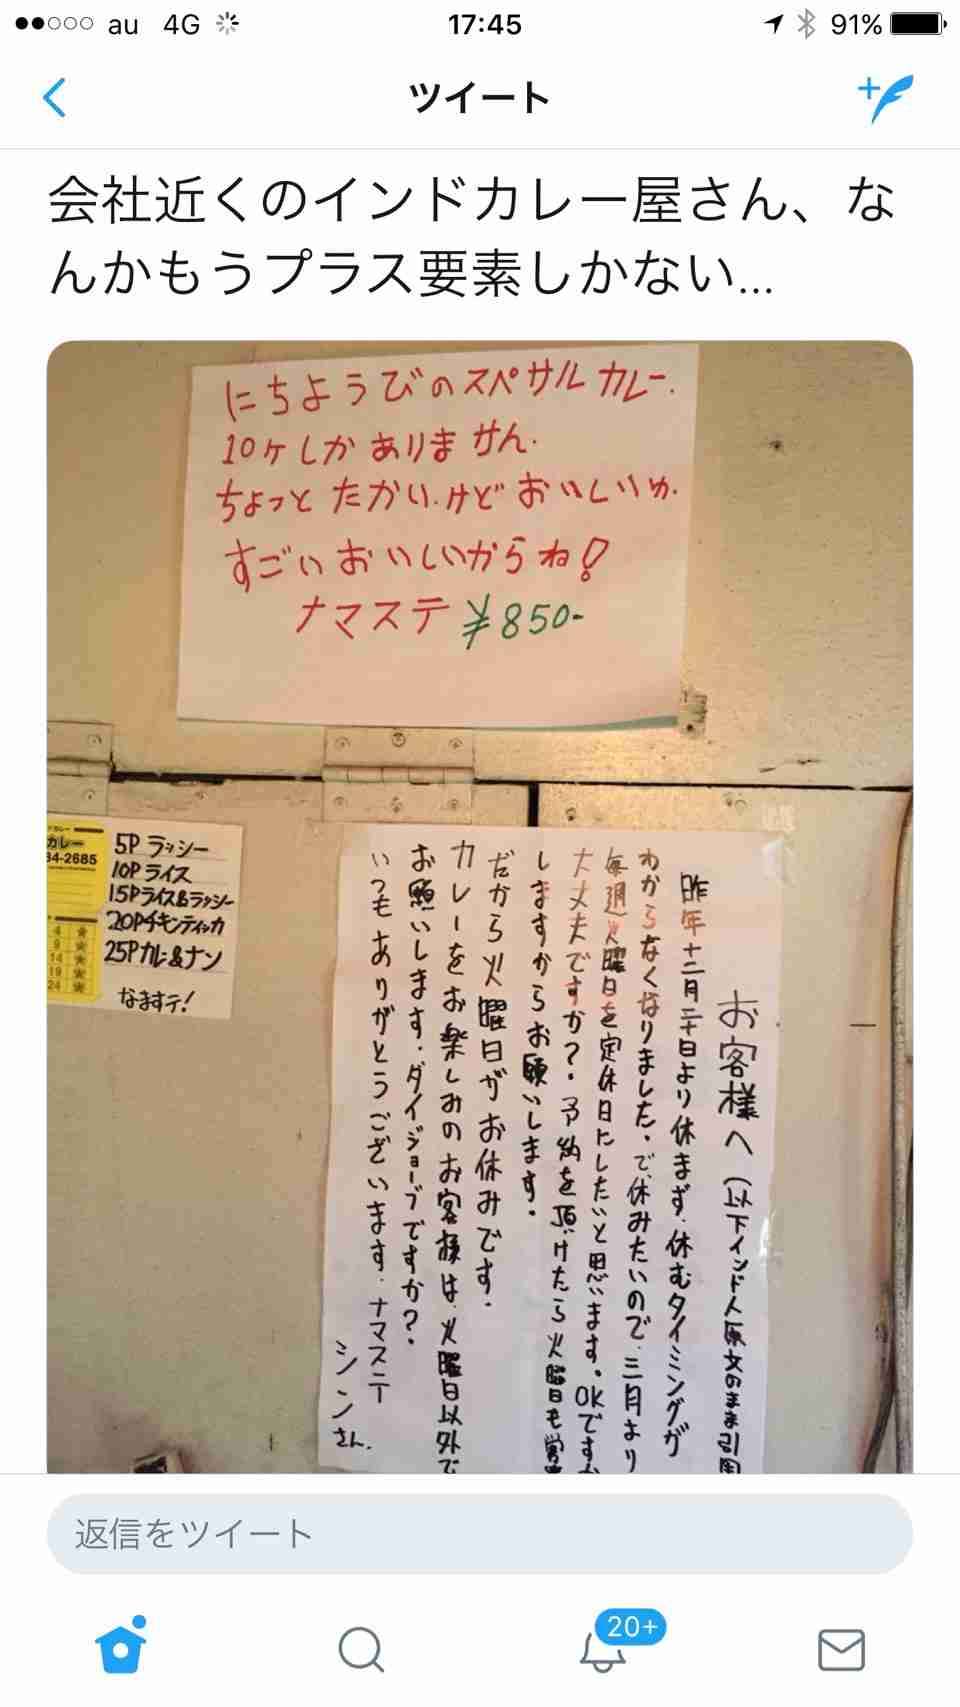 au 4G 17:45 91%
ツイート
会社近くのインドカレー屋さん、な
んかもうプラス要素しかない...
にちようびのスペサルカレー.
10ヶしかありません.
ちょっとたかい.けどおいしいゆ.
すごいおいしいからね!
ナマステ ¥850-
カレー
34-2685
4 ★
9 ★
14 ★
19 ★
24 ★
5P ラッシー
10P ライス
15Pライス&ラッシー
20Pチキンティッカ
25Pカレー&ナン
なますテ!
お客様へ(以下インド人原文のまま引用
昨年十二月二十日より休まず、休むタイミングが
わからなくなりました、で、休みたいので、三月より
毎週火曜日を定休日にしたいと思います。OKですか
大丈夫ですか?.予約を頂けたら火曜日も営業
しますからお願いします.
だから火曜日がお休みです.
カレーをお楽しみのお客様は、火曜日以外で
お願いします.ダイジョーブですか?.
いつもありがとうございます.ナマステ
シンさん.
返信をツイート
20+